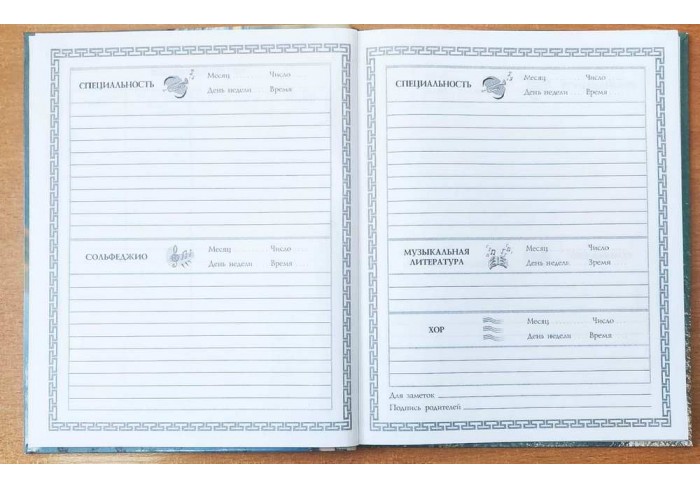 СПЕЦИАЛЬНОСТЬ
Месяц Число
День недели Время
СОЛЬФЕДЖИО
Месяц Число
День недели Время
СПЕЦИАЛЬНОСТЬ
Месяц Число
День недели Время
МУЗЫКАЛЬНАЯ
ЛИТЕРАТУРА
Месяц Число
День недели Время
ХОР
Месяц Число
День недели Время
Для заметок
Подпись родителей